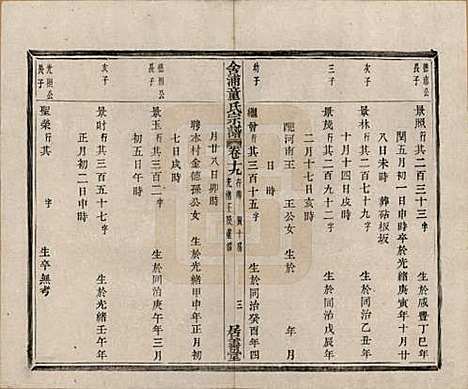 德南公長子
景照 行其二百三十三 字 生於咸豐丁巳年
閏五月初一日申時卒於光緒庚寅年十月廿
八日未時 葬砧板坂
次子
景林 行其二百七十九 字 生於同治乙丑年
十月十四日戌時
三子
景茂 行其二百九十二 字 生於同治戊辰年
二月十七日亥時
配河南王 王公女 生於 年 月
幼子
繼曾 行其三百十五 字 生於同治癸酉年四
金浦童氏宗譜 卷十九 三 居書堂
月廿八日卯時
聘本村金德孫公女 生於光緒甲申年正月初
七日戌時
長子
景玉 行其三百 字 生於同治庚午年三月
初五日午時
次子
景財 行其三百五十七 字 生於光緒壬午年
正月初二日申時
光照公長子
聖榮 行其 字 生卒無考